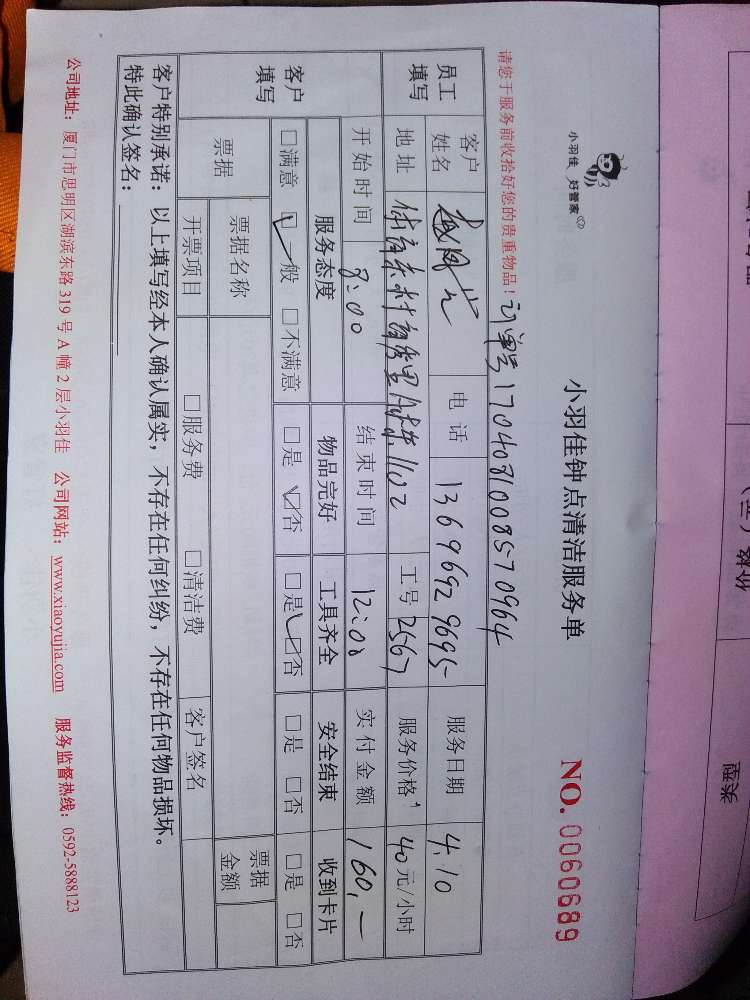 小羽佳 好管家
小羽佳钟点清洁服务单
NO. 0060689
请您于服务前收拾好您的贵重物品！订单号1704081008570964
员工填写
客户姓名 电话 13696929695 服务日期 4.10
地址 1102 工号 2567 服务价格 40元/小时
客户填写
开始时间 8:00 结束时间 12:00 实付金额 160,—
服务态度 物品完好 工具齐全 安全结束 收到卡片
□满意 ☑一般 □不满意 □是 ☑否 □是 ☑否 □是 □否 □是 □否
票据 票据名称 票据金额
开票项目 □服务费 □清洁费 客户签名
客户特别承诺：以上填写经本人确认属实，不存在任何纠纷，不存在任何物品损坏。
特此确认签名：
公司地址：厦门市思明区湖滨东路319号A幢2层小羽佳 公司网站：www.xiaoyujia.com 服务监督热线：0592-5888123